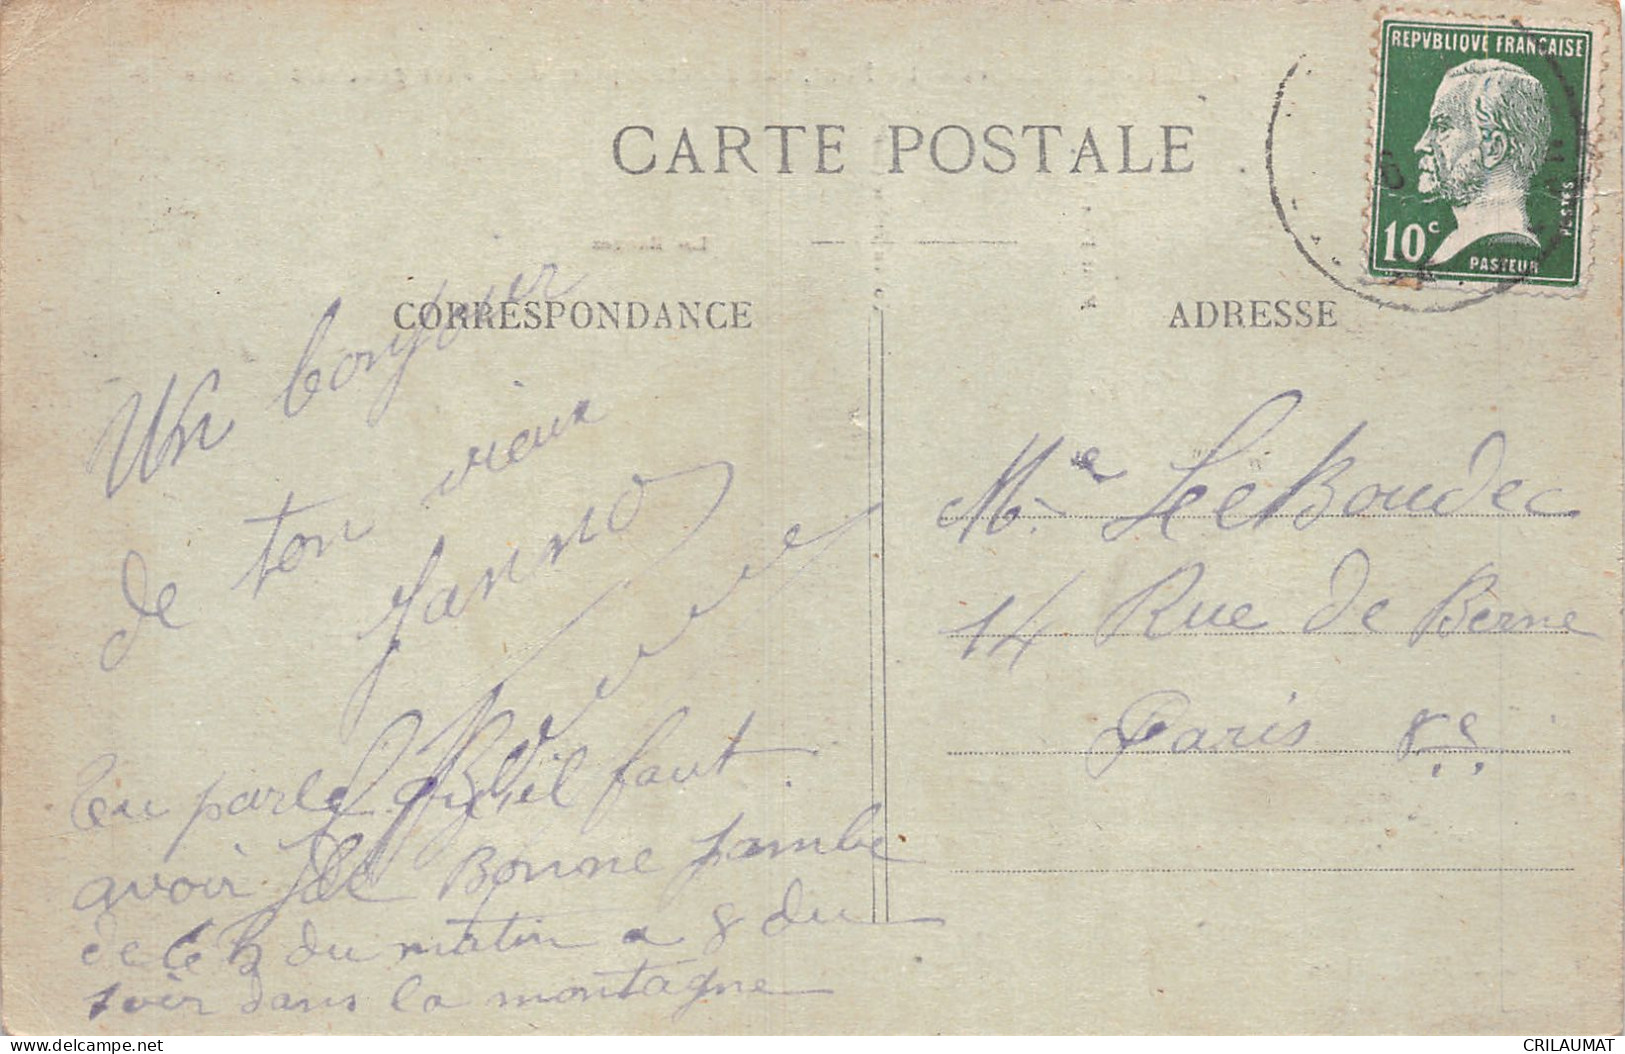 REPVBLIQVE FRANÇAISE
10c
POSTES
PASTEUR
CARTE POSTALE
CORRESPONDANCE
ADRESSE
Un bonjour
de ton vieux
Janno
tu parle qu'il faut
avoir de Bonne jambe
de 6 h du matin a 8 du
soir dans la montagne
Me Le Boudec
14 Rue de Berne
Paris 8e
delcampe.net
CRILAUMAT